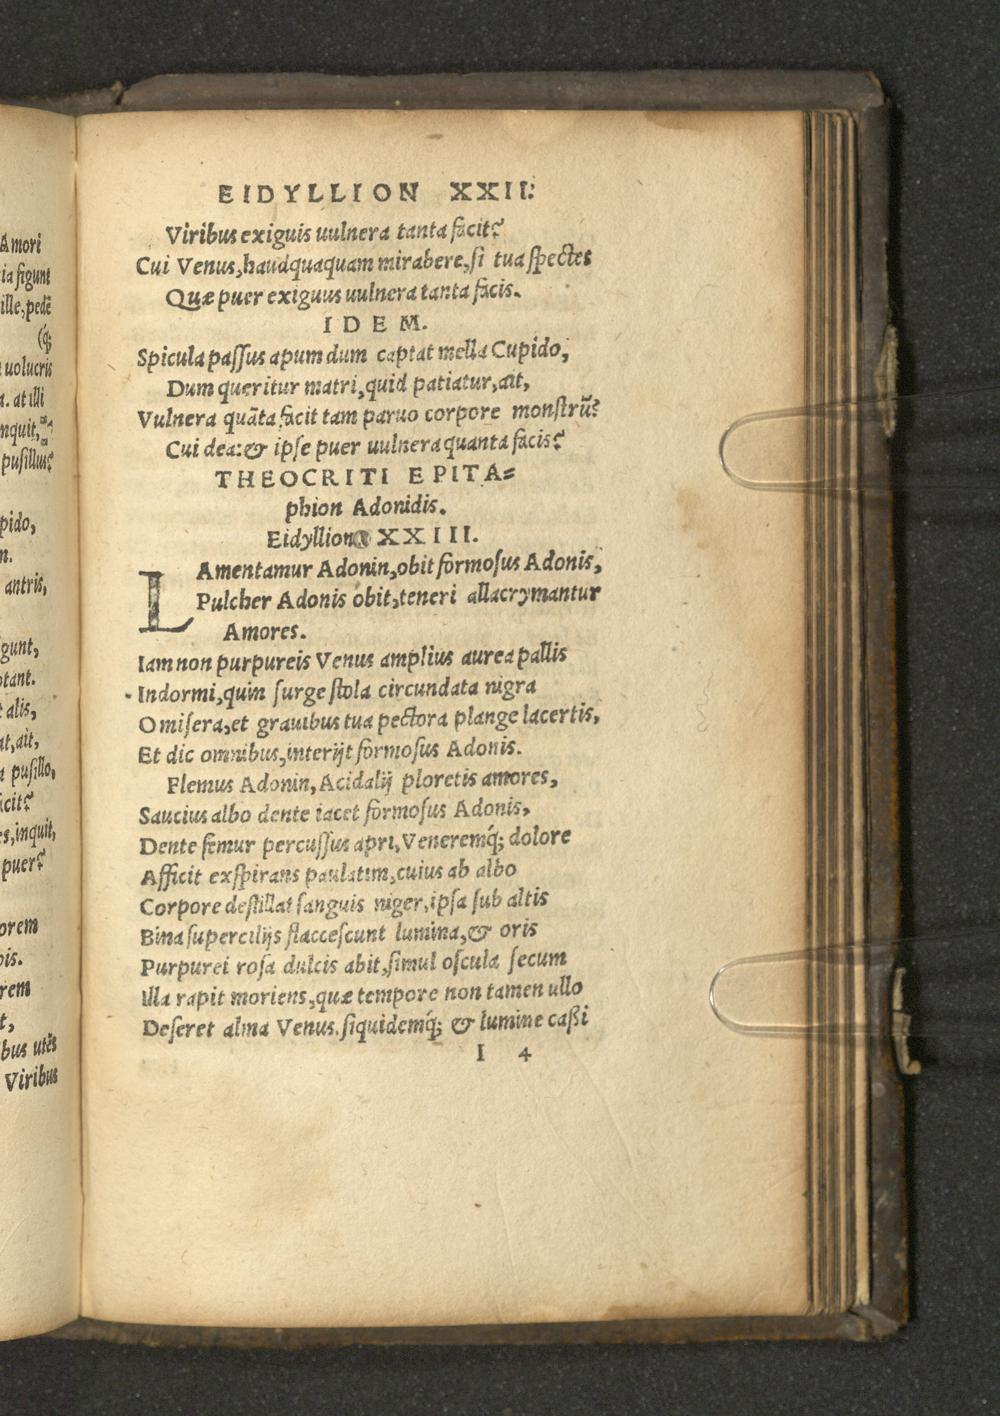 Amori
ia figunt
ille, pedẽ
(q́;
uolucris
a. at illi
nquit,
pusillus?
pido,
n.
antris,
gunt,
ptant.
t alis,
at, ait,
a pusillo,
icit?
es, inquit,
puer?
orem
pis.
rem
t,
bus utẽs
Viribus
EIDYLLION XXII:
Viribus exiguis uulnera tanta facit?
Cui Venus, haudquaquam mirabere, si tua spectes
Quæ puer exiguus uulnera tanta facis.
IDEM.
Spicula passus apum dum captat mella Cupido,
Dum queritur matri, quid patiatur, ait,
Vulnera quãta facit tam paruo corpore monstrũ?
Cui dea: & ipse puer uulnera quanta facis?
THEOCRITI EPITA=
phion Adonidis.
Eidyllion XXIII.
LAmentamur Adonin, obit formosus Adonis,
Pulcher Adonis obit, teneri allacrymantur
Amores.
Iam non purpureis Venus amplius aurea pallis
Indormi, quin surge stola circundata nigra
O misera, et grauibus tua pectora plange lacertis,
Et dic omnibus, interijt formosus Adonis.
Flemus Adonin, Acidalij ploretis amores,
Saucius albo dente iacet formosus Adonis,
Dente femur percussus apri, Veneremq́; dolore
Afficit exspirans paulatim, cuius ab albo
Corpore destillat sanguis niger, ipsa sub altis
Bina supercilijs flaccescunt lumina, & oris
Purpurei rosa dulcis abit, simul oscula secum
Illa rapit moriens, quæ tempore non tamen ullo
Deseret alma Venus. siquidemq́; & lumine caßi
I 4